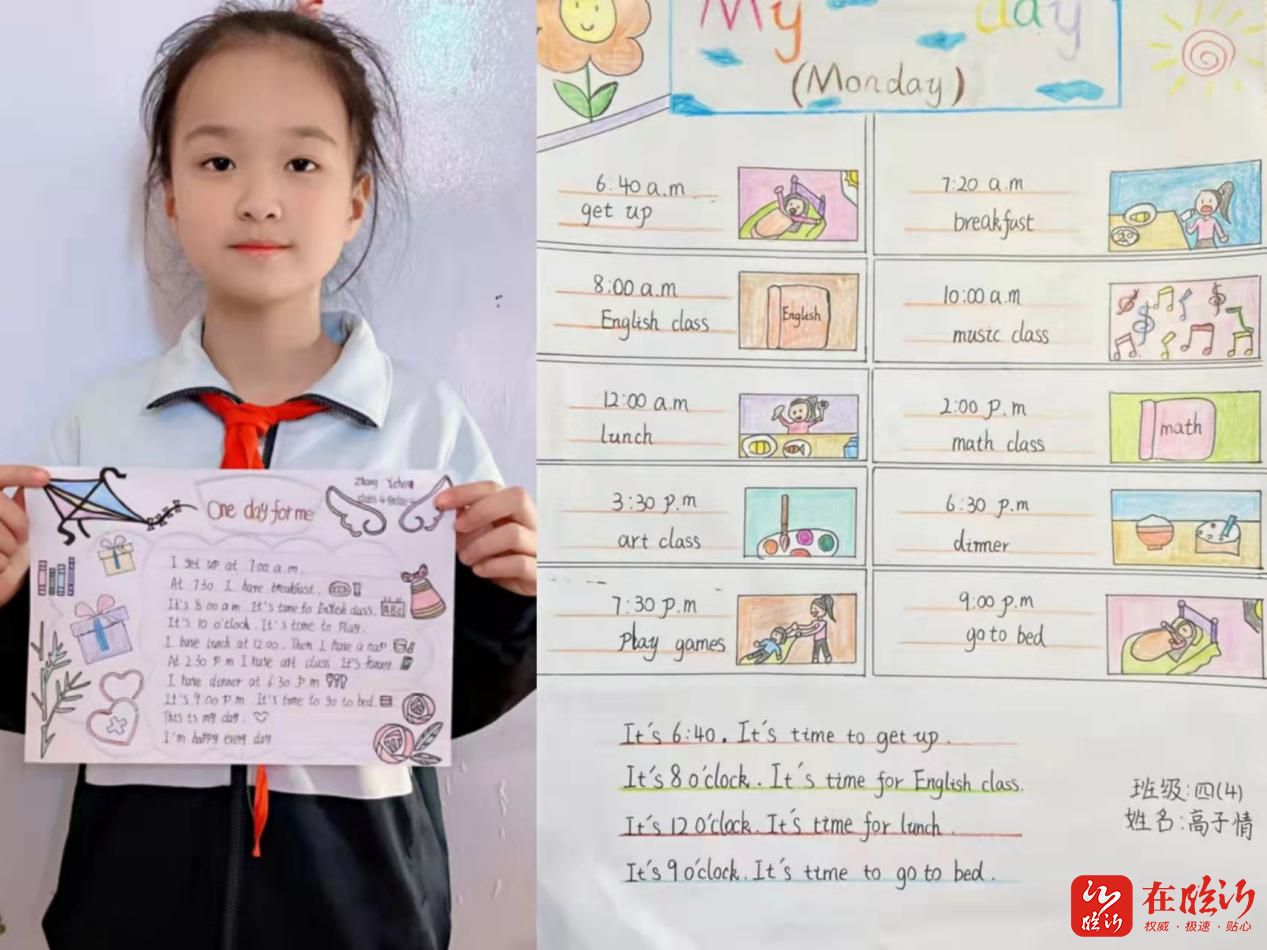 One day for me
Zhang Yicheng
class 4 Grade 4
I get up at 7:00 a.m.
At 7:30 I have breakfast.
It's 8:00 a.m. It's time fo English class.
ABC
It's 10 o'clock. It's time to Play.
I have lunch at 12:00. Then I have a nap
At 2:30 P.m I have art class. It's funny
I have dinner at 6:30 P.m
It's 9:00 P.m. It's time to go to bed.
This is my day.
I'm happy every day
My day
(Monday)
6:40 a.m
get up
7:20 a.m
breakfust
8:00 a.m
English class
English
10:00 a.m
music class
12:00 a.m
lunch
2:00 P.m
math class
math
3:30 P.m
art class
6:30 P.m
dinner
7:30 P.m
Play games
9:00 P.m
go to bed
It's 6:40. It's time to get up.
It's 8 o'clock. It's time for English class.
It's 12 o'clock. It's time for lunch.
It's 9 o'clock. It's time to go to bed.
班级:四(4)
姓名:高子情
临沂
在临沂
权威·极速·贴心